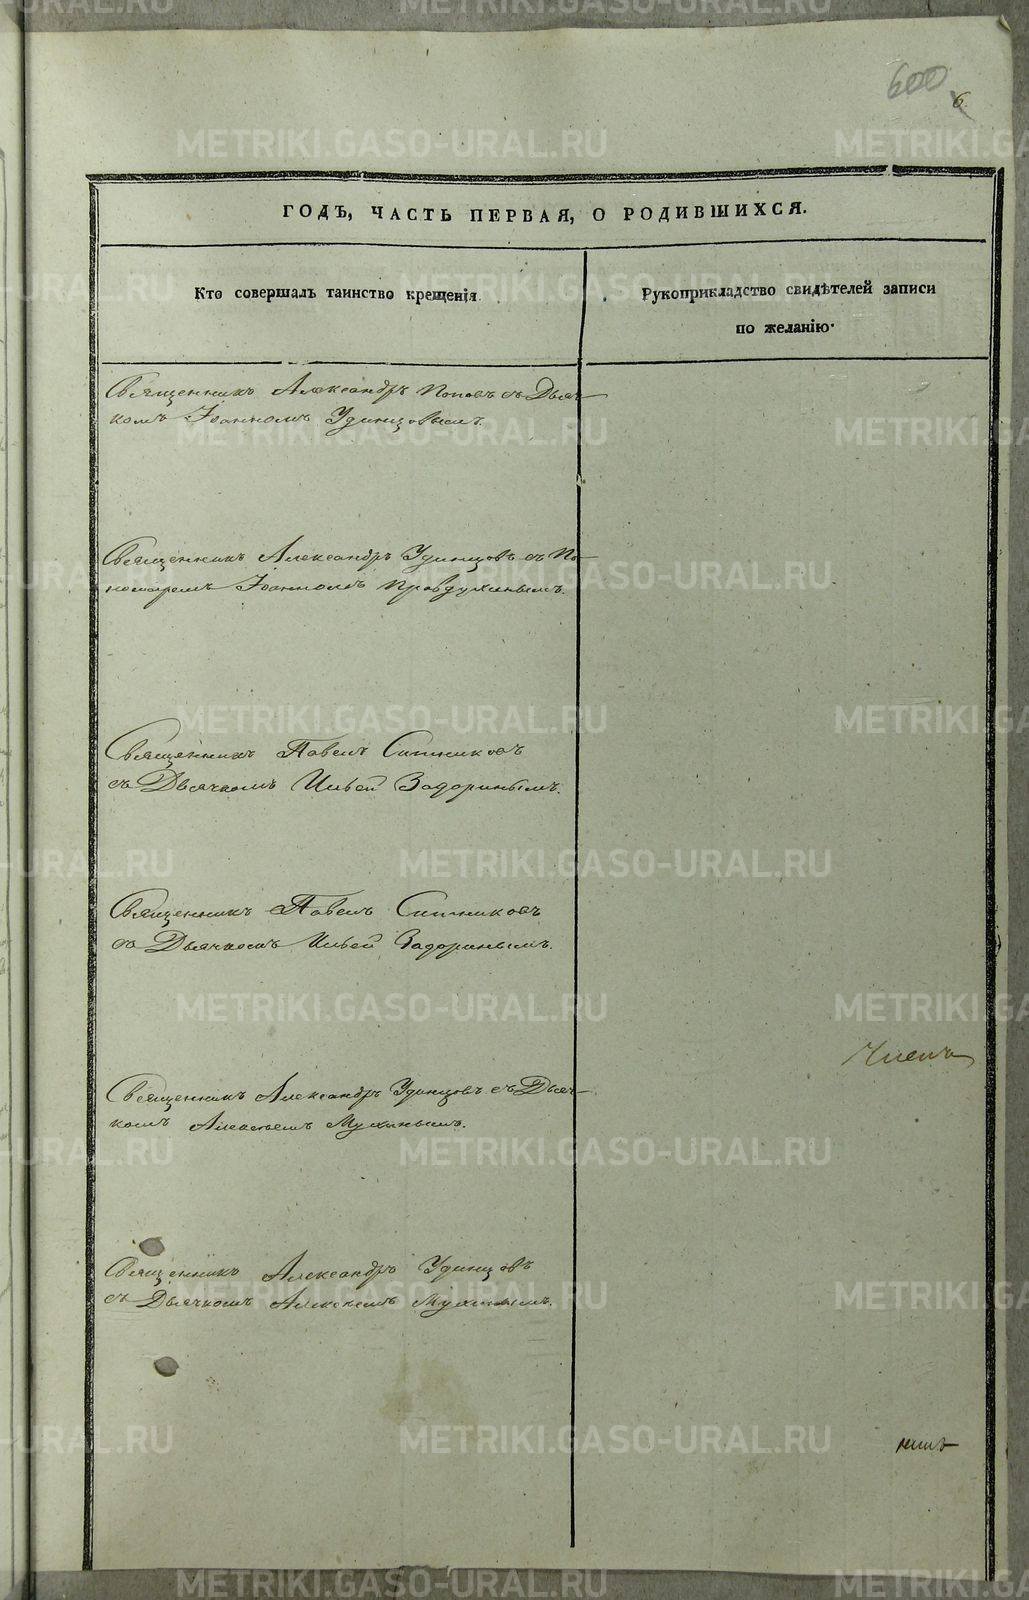 600
6
ГОДЪ, ЧАСТЬ ПЕРВАЯ, О РОДИВШИХСЯ.
Кто совершалъ таинство крещенія
Рукоприкладство свидѣтелей записи
по желанію.
Священникъ Александръ Поповъ съ Дьяч-
комъ Іоанномъ Удинцовымъ.
Священникъ Александръ Удинцовъ съ По-
номаремъ Іоанномъ Правдухинымъ.
Священникъ Павелъ Ситниковъ
съ Дьячкомъ Ильей Задоринымъ.
Священникъ Павелъ Ситниковъ
съ Дьячкомъ Ильей Задоринымъ.
Священникъ Александръ Удинцовъ съ Дьяч-
комъ Алексѣемъ Мухинымъ.
Священникъ Александръ Удинцовъ
съ Дьячкомъ Алексѣемъ Мухинымъ.
Членъ
METRIKI.GASO-URAL.RU